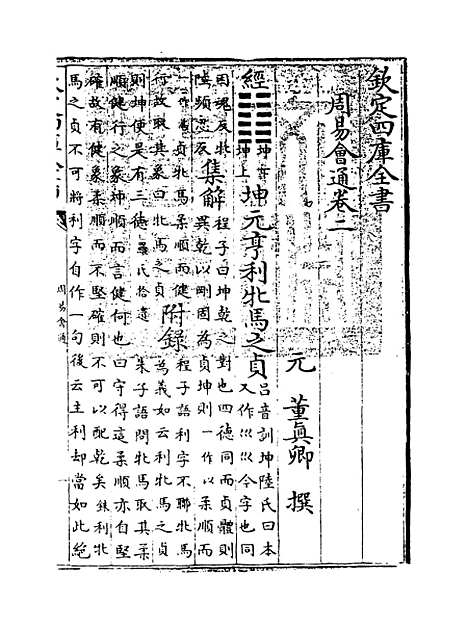 欽定四庫全書
周易會通卷二
元 董真卿 撰
經
坤下
坤上
坤元亨利牝馬之貞
呂音訓坤陸氏曰本
又作巛巛今字也同
困魂反牝
頻忍反
集解
程子曰坤乾之對也四德同而貞體則
異乾以剛固為貞坤則一作以柔順而
貞牝馬柔順而健
行故取其象曰牝馬之貞
附錄
程子語利字不聯牝馬
為義如云利牝馬之貞
則坤便是有三德
朱子語問牝馬取其柔
順健行之象坤順而言健何也曰守得這柔順亦自堅
確故有健象柔順而不堅確則不可以配乾矣銖利牝
馬之貞不可將利字自作一句後云主利却當如此絶
周易會通